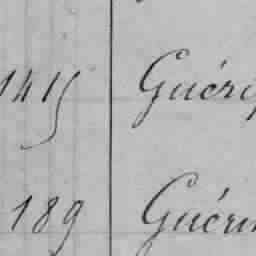 1415 Guéri
189 Guéri